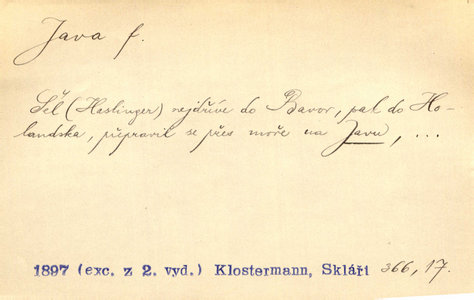 Java f.
Šel (Haslinger) nejdříve do Bavor, pak do Ho-
landska, přepravil se přes moře na Javu, ...
1897 (exc. z 2. vyd.) Klostermann, Skláři 366, 17.